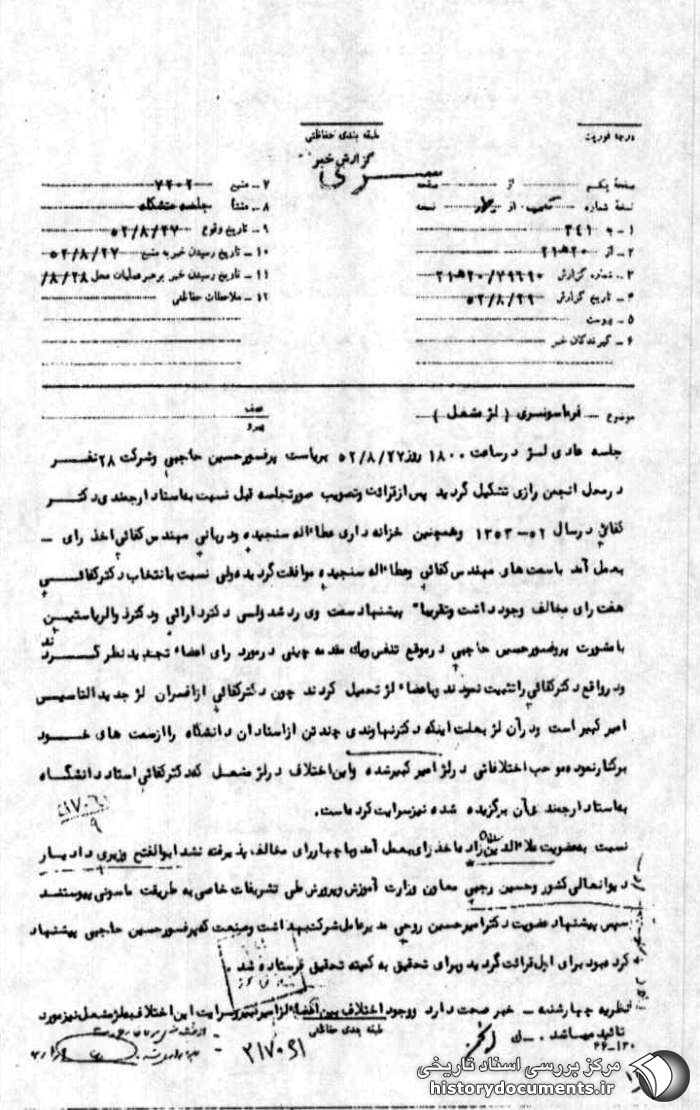 طبقه بندی حفاظتی
درجه فوریت
گزارش خبر
سری
صفحهٔ یکم از صفحه
نسخهٔ شماره از نسخه
۱ـ به ۳۴۱
۲ـ از ۲۰ ه‍ ۲۱
۳ـ شماره گزارش ۲۱ه‍۲۰/۷۹۶۹۰
۴ـ تاریخ گزارش ۵۲/۸/۲۹
۵ـ پیوست
۶ـ گیرندگان خبر
۷ـ منبع ۷۲۰۲
۸ـ منشأ جلسه متشکله
۹ـ تاریخ وقوع ۵۲/۸/۲۷
۱۰ـ تاریخ رسیدن خبر به منبع ۵۲/۸/۲۷
۱۱ـ تاریخ رسیدن خبر برهبر عملیات محل ۸/۲۸/
۱۲ـ ملاحظات حفاظتی
موضوع ـ فرماسونری ( لژ مشعل )
عطف
پیرو
جلسه عادی لژ در ساعت ۱۸۰۰ روز ۵۲/۸/۲۷ بریاست پرفسور حسین حاجبی و شرکت ۲۸ نفر
در محل انجمن رازی تشکیل گردید پس از قرائت و تصویب صورتجلسه قبل نسبت به استاد ارجمندی دکتر
کفائی در سال ۵۲ـ ۱۳۵۳ و همچنین خزانه داری عطاءاله سنجیده و دربانی مهندس کفائی اخذ رای ـ
بعمل آمد با سمت های مهندس کفائی و عطاءاله سنجیده موافقت گردیده ولی نسبت بانتخاب دکتر کفائی
هفت رای مخالف وجود داشت و تقریباً پیشنهاد سمت وی رد شد ولی دکتر دارائی و دکتر ذوالریاستین
با مشورت پروفسور حسین حاجبی در موقع تنفس و یک مقدمه چینی در مورد رای اعضاء تجدید نظر کردند
و در واقع دکتر کفائی را تثبیت نمودند و باعضاء لژ تحمیل کردند چون دکتر کفائی از افسران لژ جدید التاسیس
امیر کبیر است و در آن لژ بعلت اینکه دکتر نهاوندی چند تن از استادان دانشگاه را از سمت های خود
برکنار نموده موجب اختلافاتی در لژ امیر کبیر شده و این اختلاف در لژ مشعل که دکتر کفائی استاد دانشگاه
به استاد ارجمندی آن برگزیده شده نیز سرایت کرده است.
نسبت به عضویت علاءالدین زاد اخذ رای بعمل آمد و با چهار رای مخالف پذیرفته نشد ابوالفتح وزیری دادیار
دیوانعالی کشور و حسین رجبی معاون وزارت آموزش و پرورش طی تشریفات خاصی به طریقت ماسونی پیوستند
سپس پیشنهاد عضویت دکتر امیر حسین روحی مدیر عامل شرکت بهداشت و صنعت که پرفسور حسین حاجبی پیشنهاد
کرده بود برای اول قرائت گردید و برای تحقیق به کمیته تحقیق فرستاده شد .
نظریه چهارشنبه ـ خبر صحت دارد و وجود اختلاف بین اعضاء لژ امیر کبیر و سرایت این اختلاف به لژ مشعل نیز مورد
تائید میباشد .
طبقه بندی حفاظتی
۲۱۷۰۶۱
۲۶ـ۱۳۰
مرکز بررسی اسناد تاریخی
historydocuments.ir